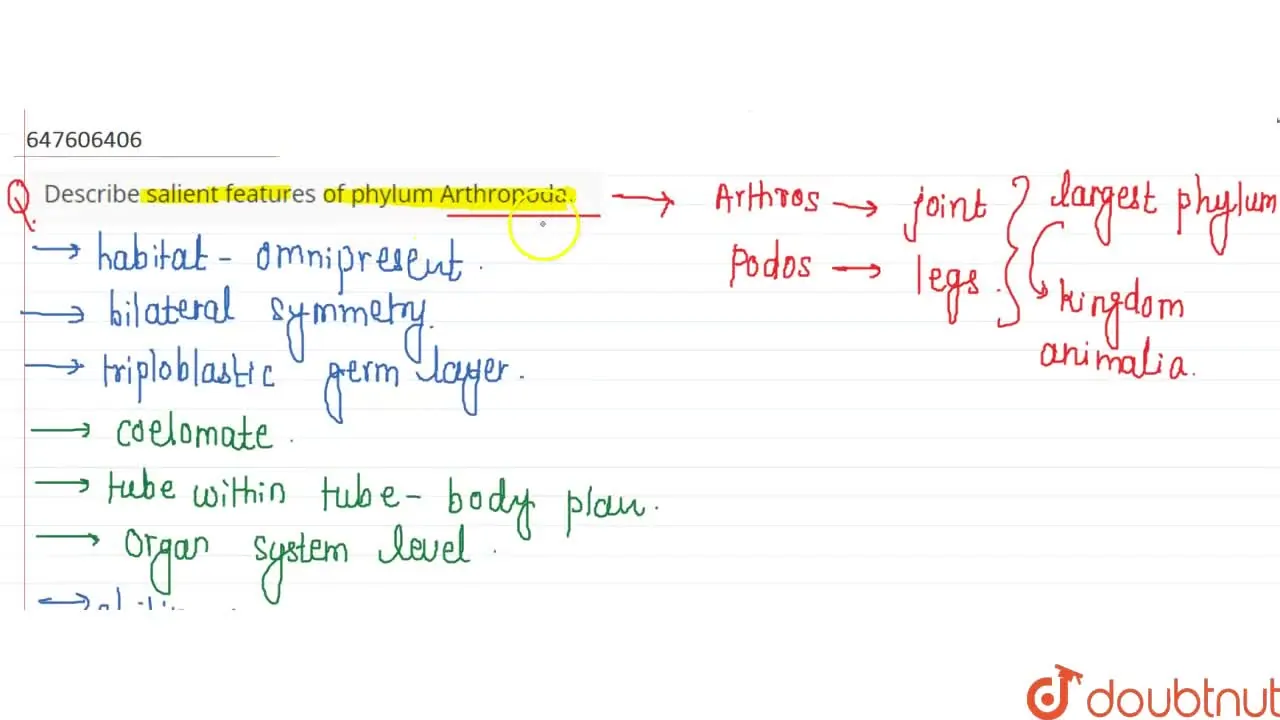 647606406
Q. Describe salient features of phylum Arthropoda.
→ Arthros → joint
Podos → legs.
largest phylum
kingdom
animalia.
→ habitat - omnipresent.
→ bilateral symmetry.
→ triploblastic germ layer.
→ coelomate.
→ tube within tube - body plan.
→ Organ system level.
doubtnut